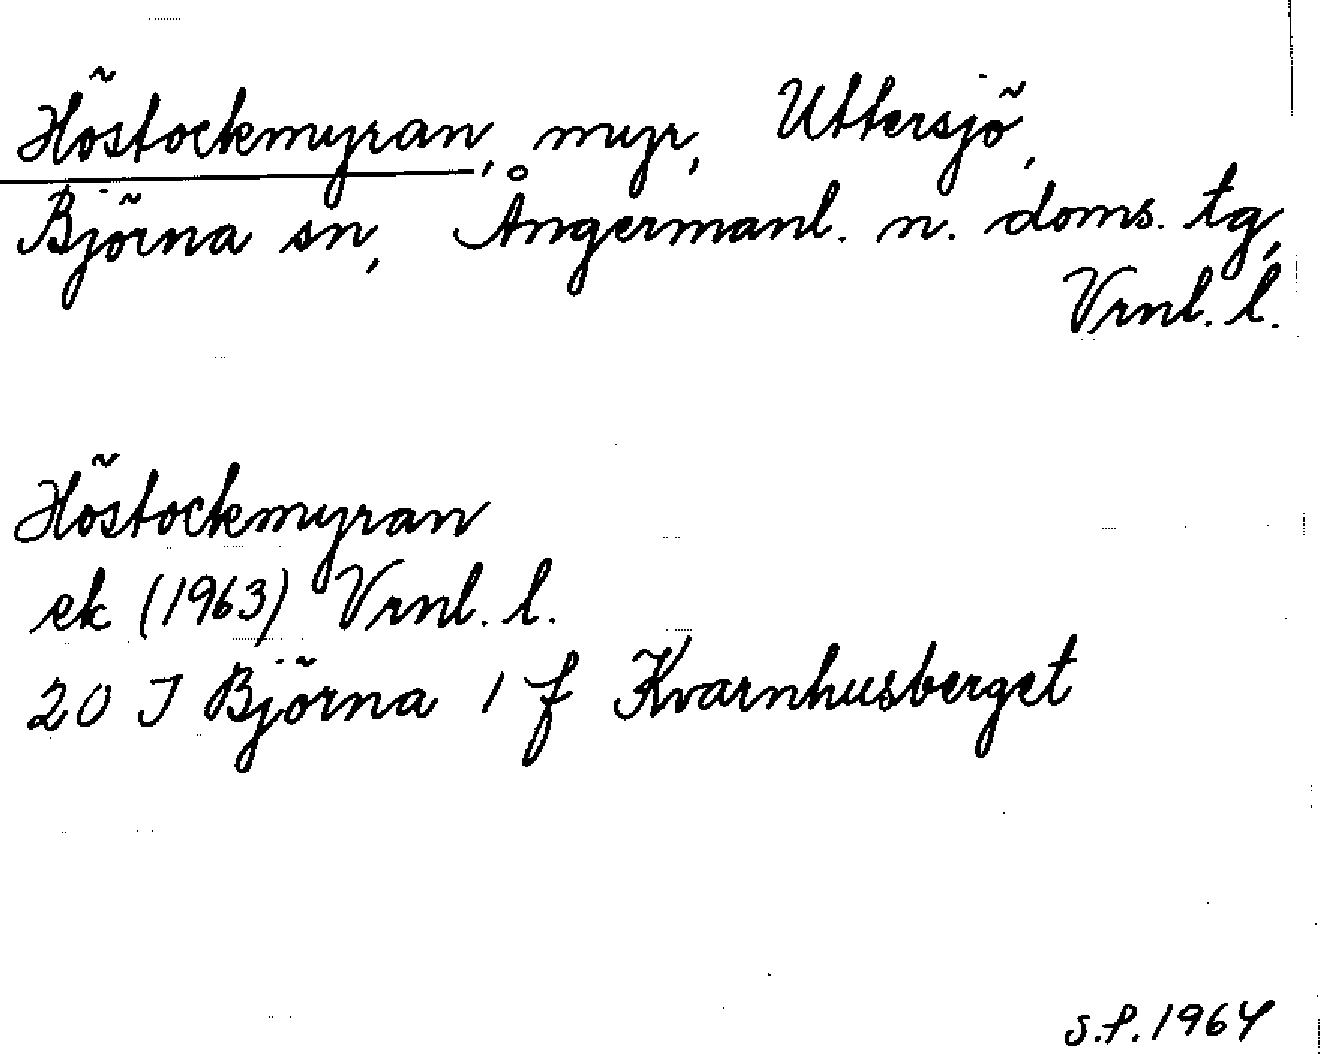 Höstockmyran, myr, Uttersjö,
Björna sn, Ångermanl. n. doms. tg,
Vrnl. l.
Höstockmyran
ek (1963) Vrnl. l.
20 J Björna 1 f Kvarnhusberget
S.P. 1964